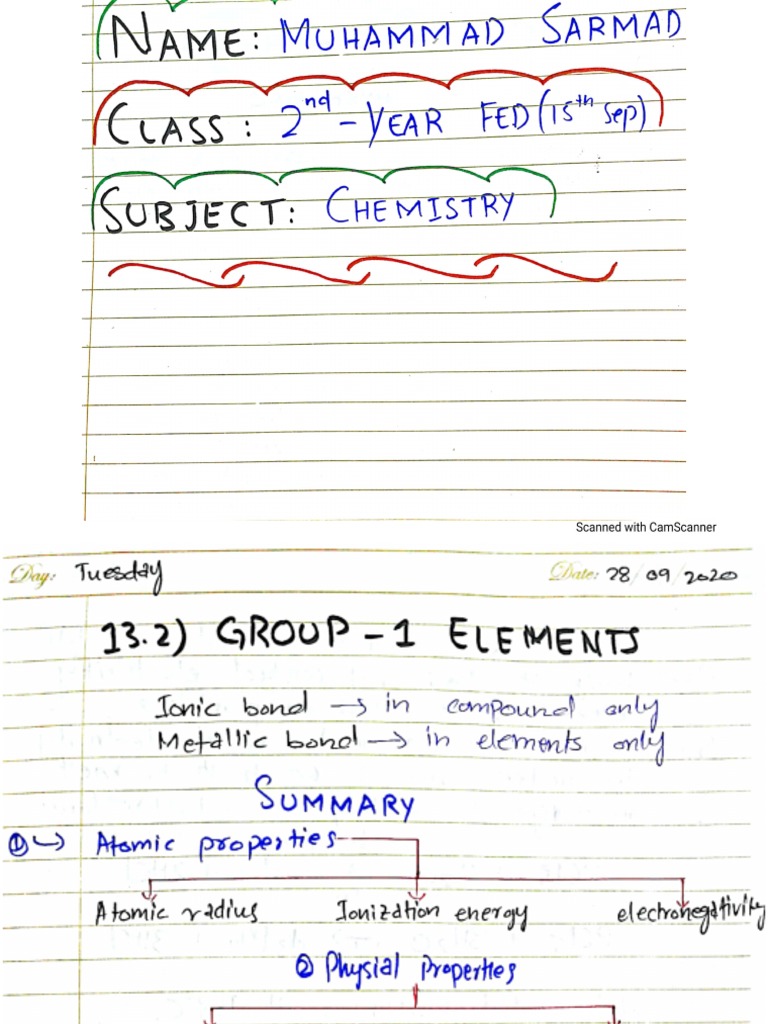 NAME: MUHAMMAD SARMAD
CLASS: 2nd-YEAR FED (15th Sep)
SUBJECT: CHEMISTRY
Scanned with CamScanner
Day: Tuesday Date: 28/09/2020
13.2) GROUP-1 ELEMENTS
Ionic bond → in compound only
Metallic bond → in elements only
SUMMARY
① ↪ Atomic properties
Atomic radius Ionization energy electronegativity
② Physial Properties